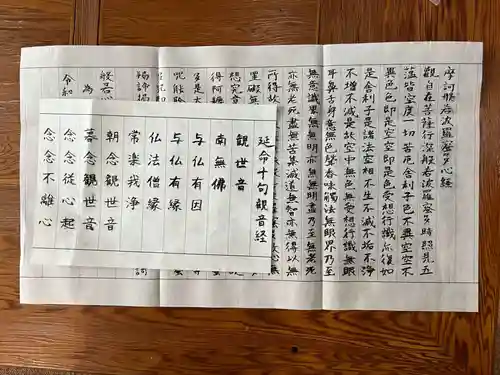 摩訶般若波羅蜜多心経
観自在菩薩行深般若波羅蜜多時照見五
蘊皆空度一切苦厄舎利子色不異空空不
異色色即是空空即是色受想行識亦復如
是舎利子是諸法空相不生不滅不垢不浄
不増不減是故空中無色無受想行識無眼
耳鼻舌身意無色声香味触法無眼界乃至
無意識界無無明亦無無明尽乃至無老死
亦無老死尽無苦集滅道無智亦無得以無
所得故
罣礙無
想究竟
得阿耨
是大
呪能除
羯諦羯
般若心
為
令和
延命十句観音経
観世音
南無佛
与仏有因
与仏有縁
仏法僧縁
常楽我浄
朝念観世音
暮念観世音
念念従心起
念念不離心